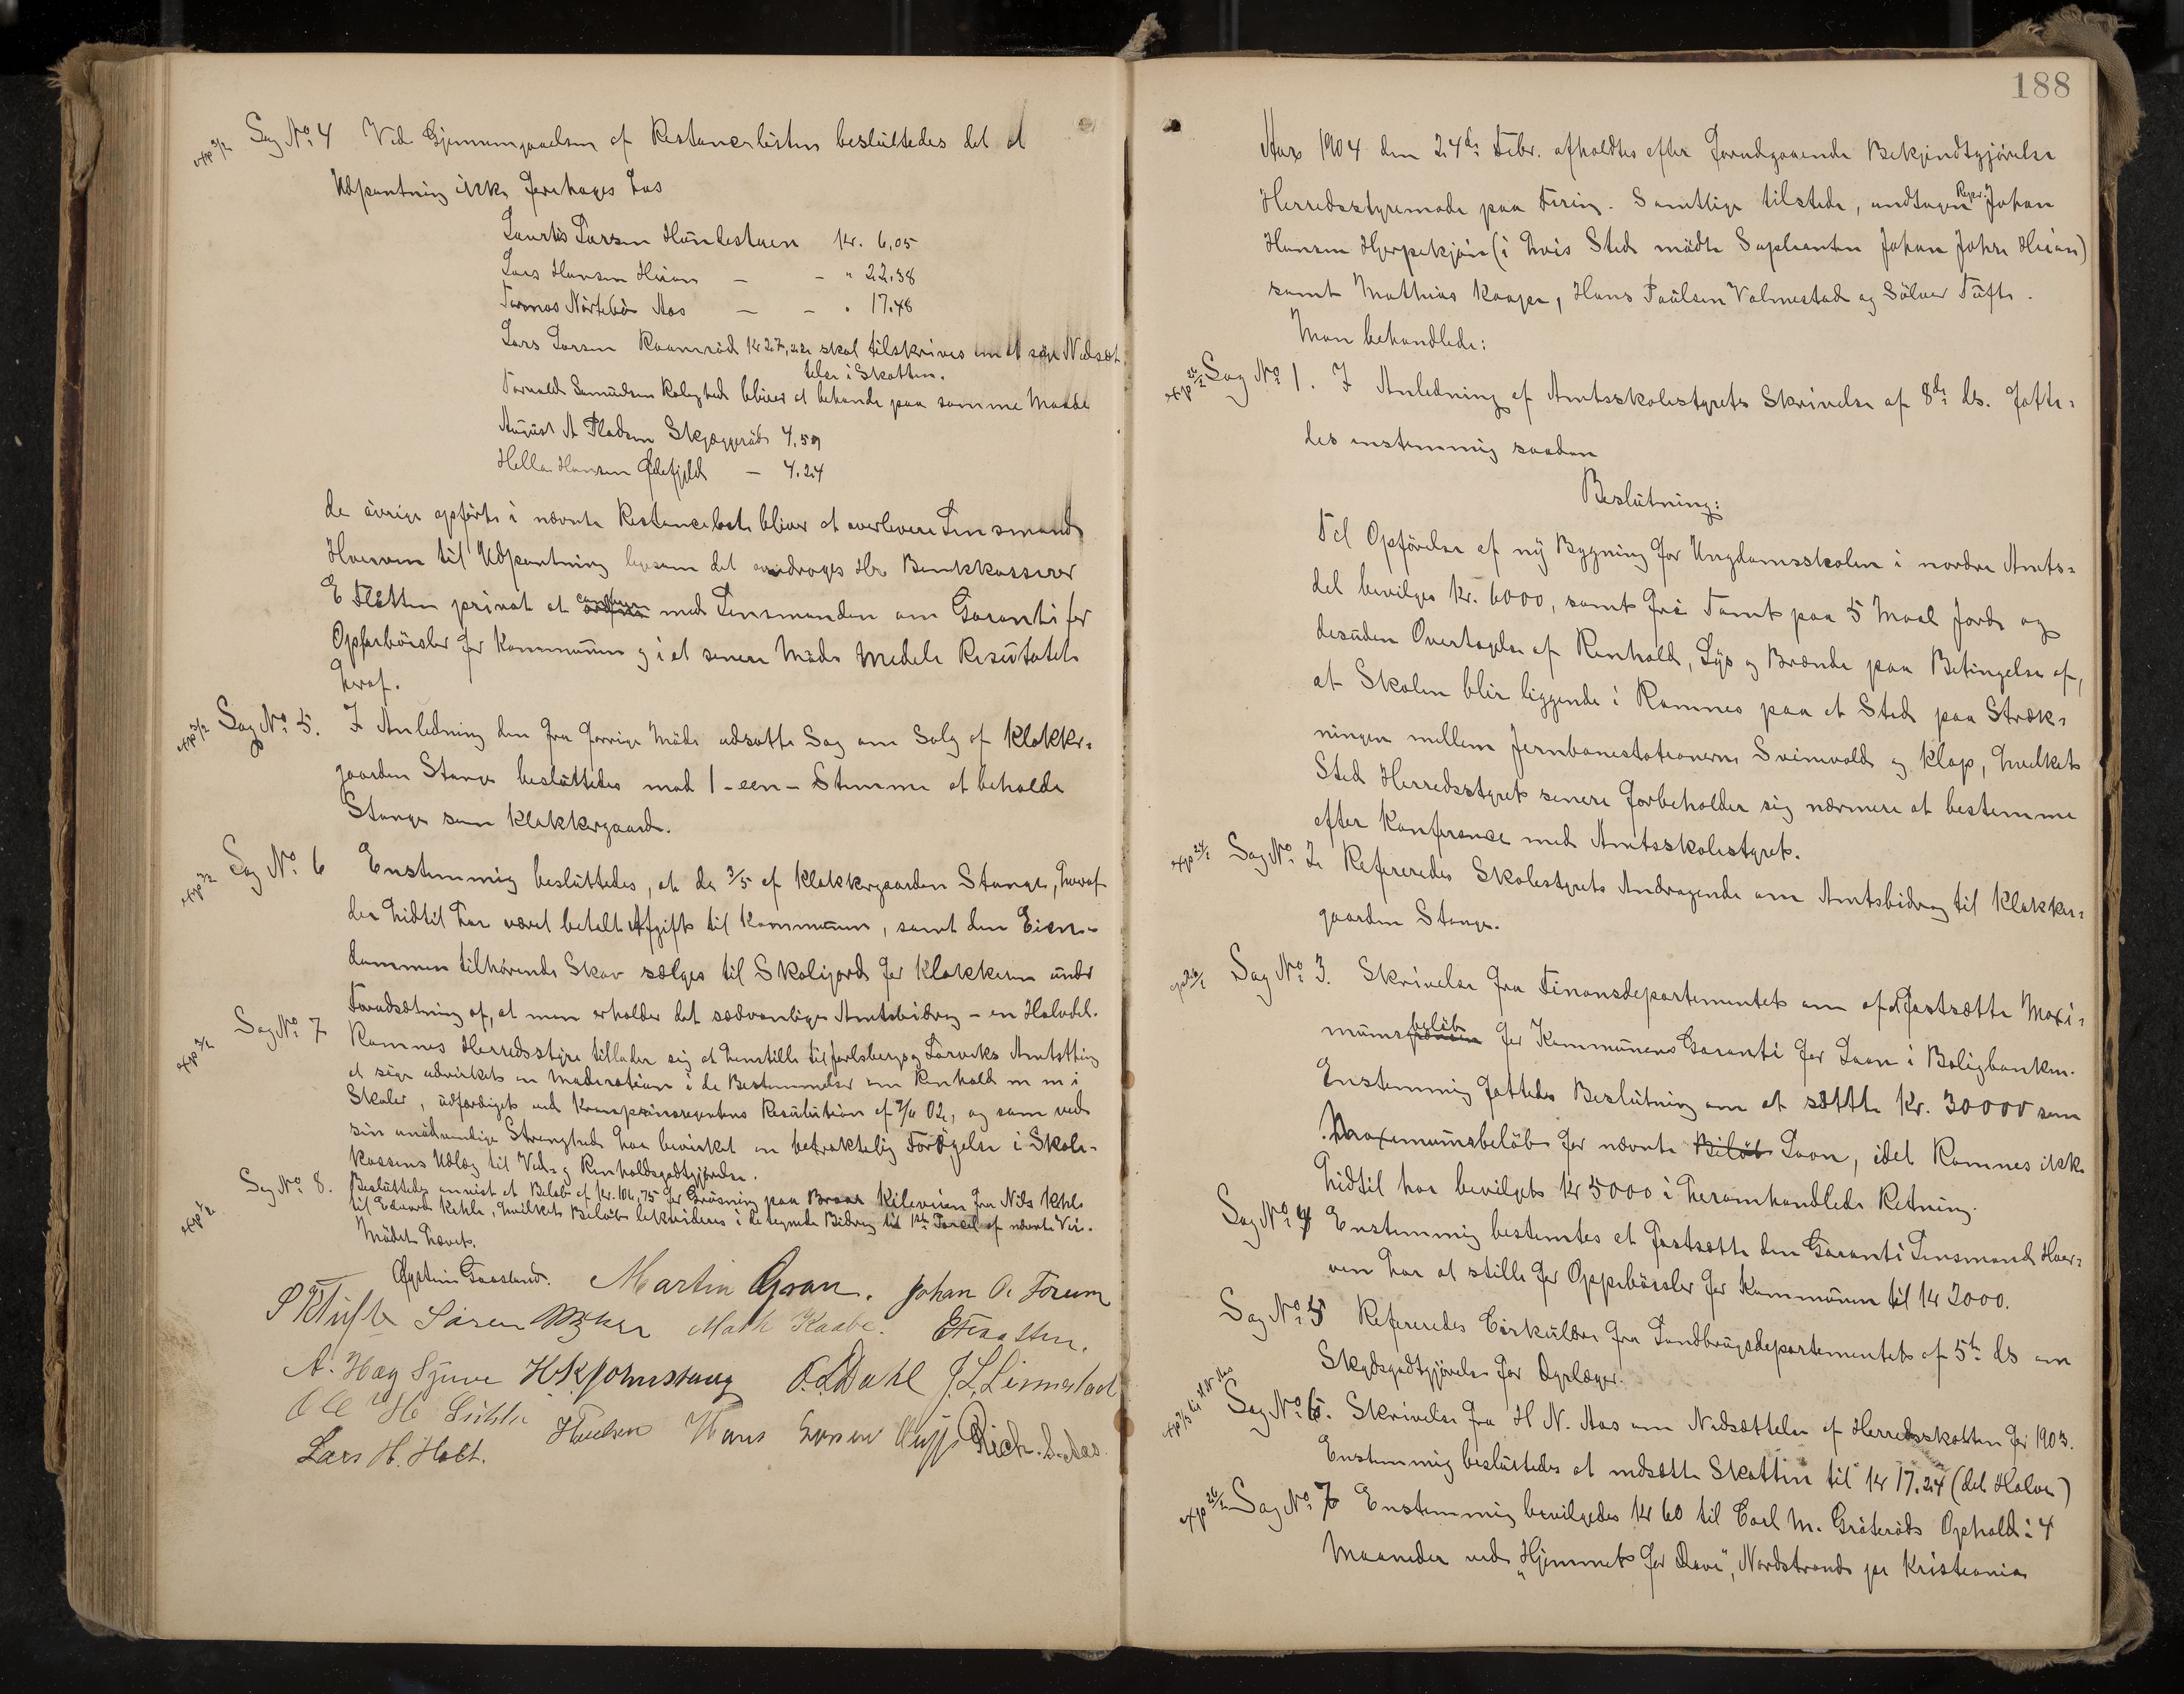 exp 3/2 Sag No 4 Ved Gjennemgaaelsen af Restancelisten besluttedes det at
Udpantning ikke foretages hos
Laurits Larsen Hundestuen Kr. 6,05
Lars Hansen Heian — - " 22,38
Tormas Nörtebö Aas — - " 17.48
Lars Larsen Raamröd Kr 27,22 skal tilskrives om at söge Nedsæt
telse i Skatten.
Torvald Samuelsen Rolighed bliver at behandle paa samme Maade
August A Pladsen Skjæggeröd 4.59
Hella Hansen — 4.24
de övrige opförte i nævnte Restanceliste bliver at overlevere Lensmand
Hoarven til Udpantning ligesom det andrages Hr. Bankkasserer
E Flåtten privat at conferere med Lensmanden om Garanti for
Oppebörsler for Kommunen og i et senere Möde meddele Resultatet
heraf.
exp 3/2 Sag No 5. I Anledning den fra forrige Möde udsatte Sag om Salg af Klokker-
gaarden Stange besluttedes mod 1 - een - Stemme at beholde
Stange som Klokkergaard.
exp 3/2 Sag No 6 Enstemmig besluttedes, at de 3/5 af Klokkergaarden Stange, hvoraf
der hidtil har været betalt Afgift til Kommunen, samt den Eien-
dommen tilhörende Skov sælges til Skolejord for Klokkeren under
Forudsætning af, at man erholder det sædvanlige Amtsbidrag - en Halvdel.
exp 3/2 Sag No 7 Ramnes Herredsstyre tillader sig at henstille til Jarlsberg og Larviks Amtsthing
at söge udvirket en Moderation i de Bestemmelser om Renhold m m i
Skoler, udfærdiget ved Kronprinsregentens Resolution af 02, og som ved
sin unödvendige Strenghed har bevirket en betraktelig Forögelse i Skole-
kassens Udlæg til Ved- og Renholdsgodtgjörelse.
exp 3/2 Sag No 8. Besluttedes anvist et Belöb af Kr. 104,75 for Grusning paa Kileveien fra Nils Kihle
til Edvard Kihle, hvilket Belöb lekvideres i de tegnede Bidrag til 1ste Parcel af nævnte Vei.
Mödet hævet.
Öystein Gaasland. Martin Gran. Johan A. Forum
S K Tufte Sören Math Kaabe. E Flaatten.
A. Hag Sjuve H.K. Johnsrang O.L Dahl J. L. Linnestad
Ole H Lühle Hans Rich. L. Aas.
Lars H. Holt.
188
Aar 1904 den 24de Febr. afholdtes efter forudgaaende Bekjendtgjörelse
Herredsstyremöde paa Firing. Samtlige tilstede, undtagen Johan
Hansen Hjerpekjön (i hvis Sted mödte Suplianten Johan Johns Heian)
samt Mathias Kaape, Hans Paulsen Valmestad og Sölver Tufte.
Man behandlede:
exp 26/2 Sag No 1. I Anledning af Amtsskolestyrets Skrivelse af 8de ds. fatte-
des enstemmig saadan
Beslutning:
Til Opförelse af ny Bygning for Ungdomsskolen i nordre Amts-
del bevilges Kr. 6000, samt fri Tomt paa 5 Maal Jord og
desuden Overtagelse af Renhold, Lys og Brænde paa Betingelse af,
at Skolen blir liggende i Ramnes paa et Sted paa Stræk-
ningen mellem Jernbanestationerne Svinevold og Klop, hvilket
Sted Herredsstyret senere forbeholder sig nærmere at bestemme
efter Konference med Amtsskolestyret.
exp 24/2 Sag No 2 Refereredes Skolestyrets Andragende om Amtsbidrag til Klokker-
gaarden Stange.
Sag No 3. Skrivelse fra Finansdepartementet om at fastsætte Maxi-
mumsbelöb for Kommunens Garanti for Laan i Boligbanken.
Enstemmig fattedes Beslutning om at sætte Kr. 30000 som
Maxemumsbelöb for nævnte Belöb Laan, idet Ramnes ikke
hidtil har bevilget Kr 5000 i heromhandlede Retning.
Sag No 4 Enstemmig bestemtes at fastsætte den Garanti Lensmand Hoar-
ven har at stille for Oppebörsler for Kommunen til Kr 2000.
Sag No 5 Refereredes Cirkulære fra Landbrugsdepartementet af 5te ds om
Skydsgodtgjörelse for Dyrlæger.
exp 1/3 til H N Aas Sag No 6. Skrivelse fra H N. Aas om Nedsættelse af Herredsskatten for 1903.
Enstemmig besluttedes at nedsætte Skatten til Kr 17.24 (det Halve)
exp 26/2 Sag No 7 Enstemmig bevilgedes Kr 60 til Carl M. Gröteröds Ophold i 4
Maaneder ved "Hjemmet for Döve", Nordstrand pr Kristiania